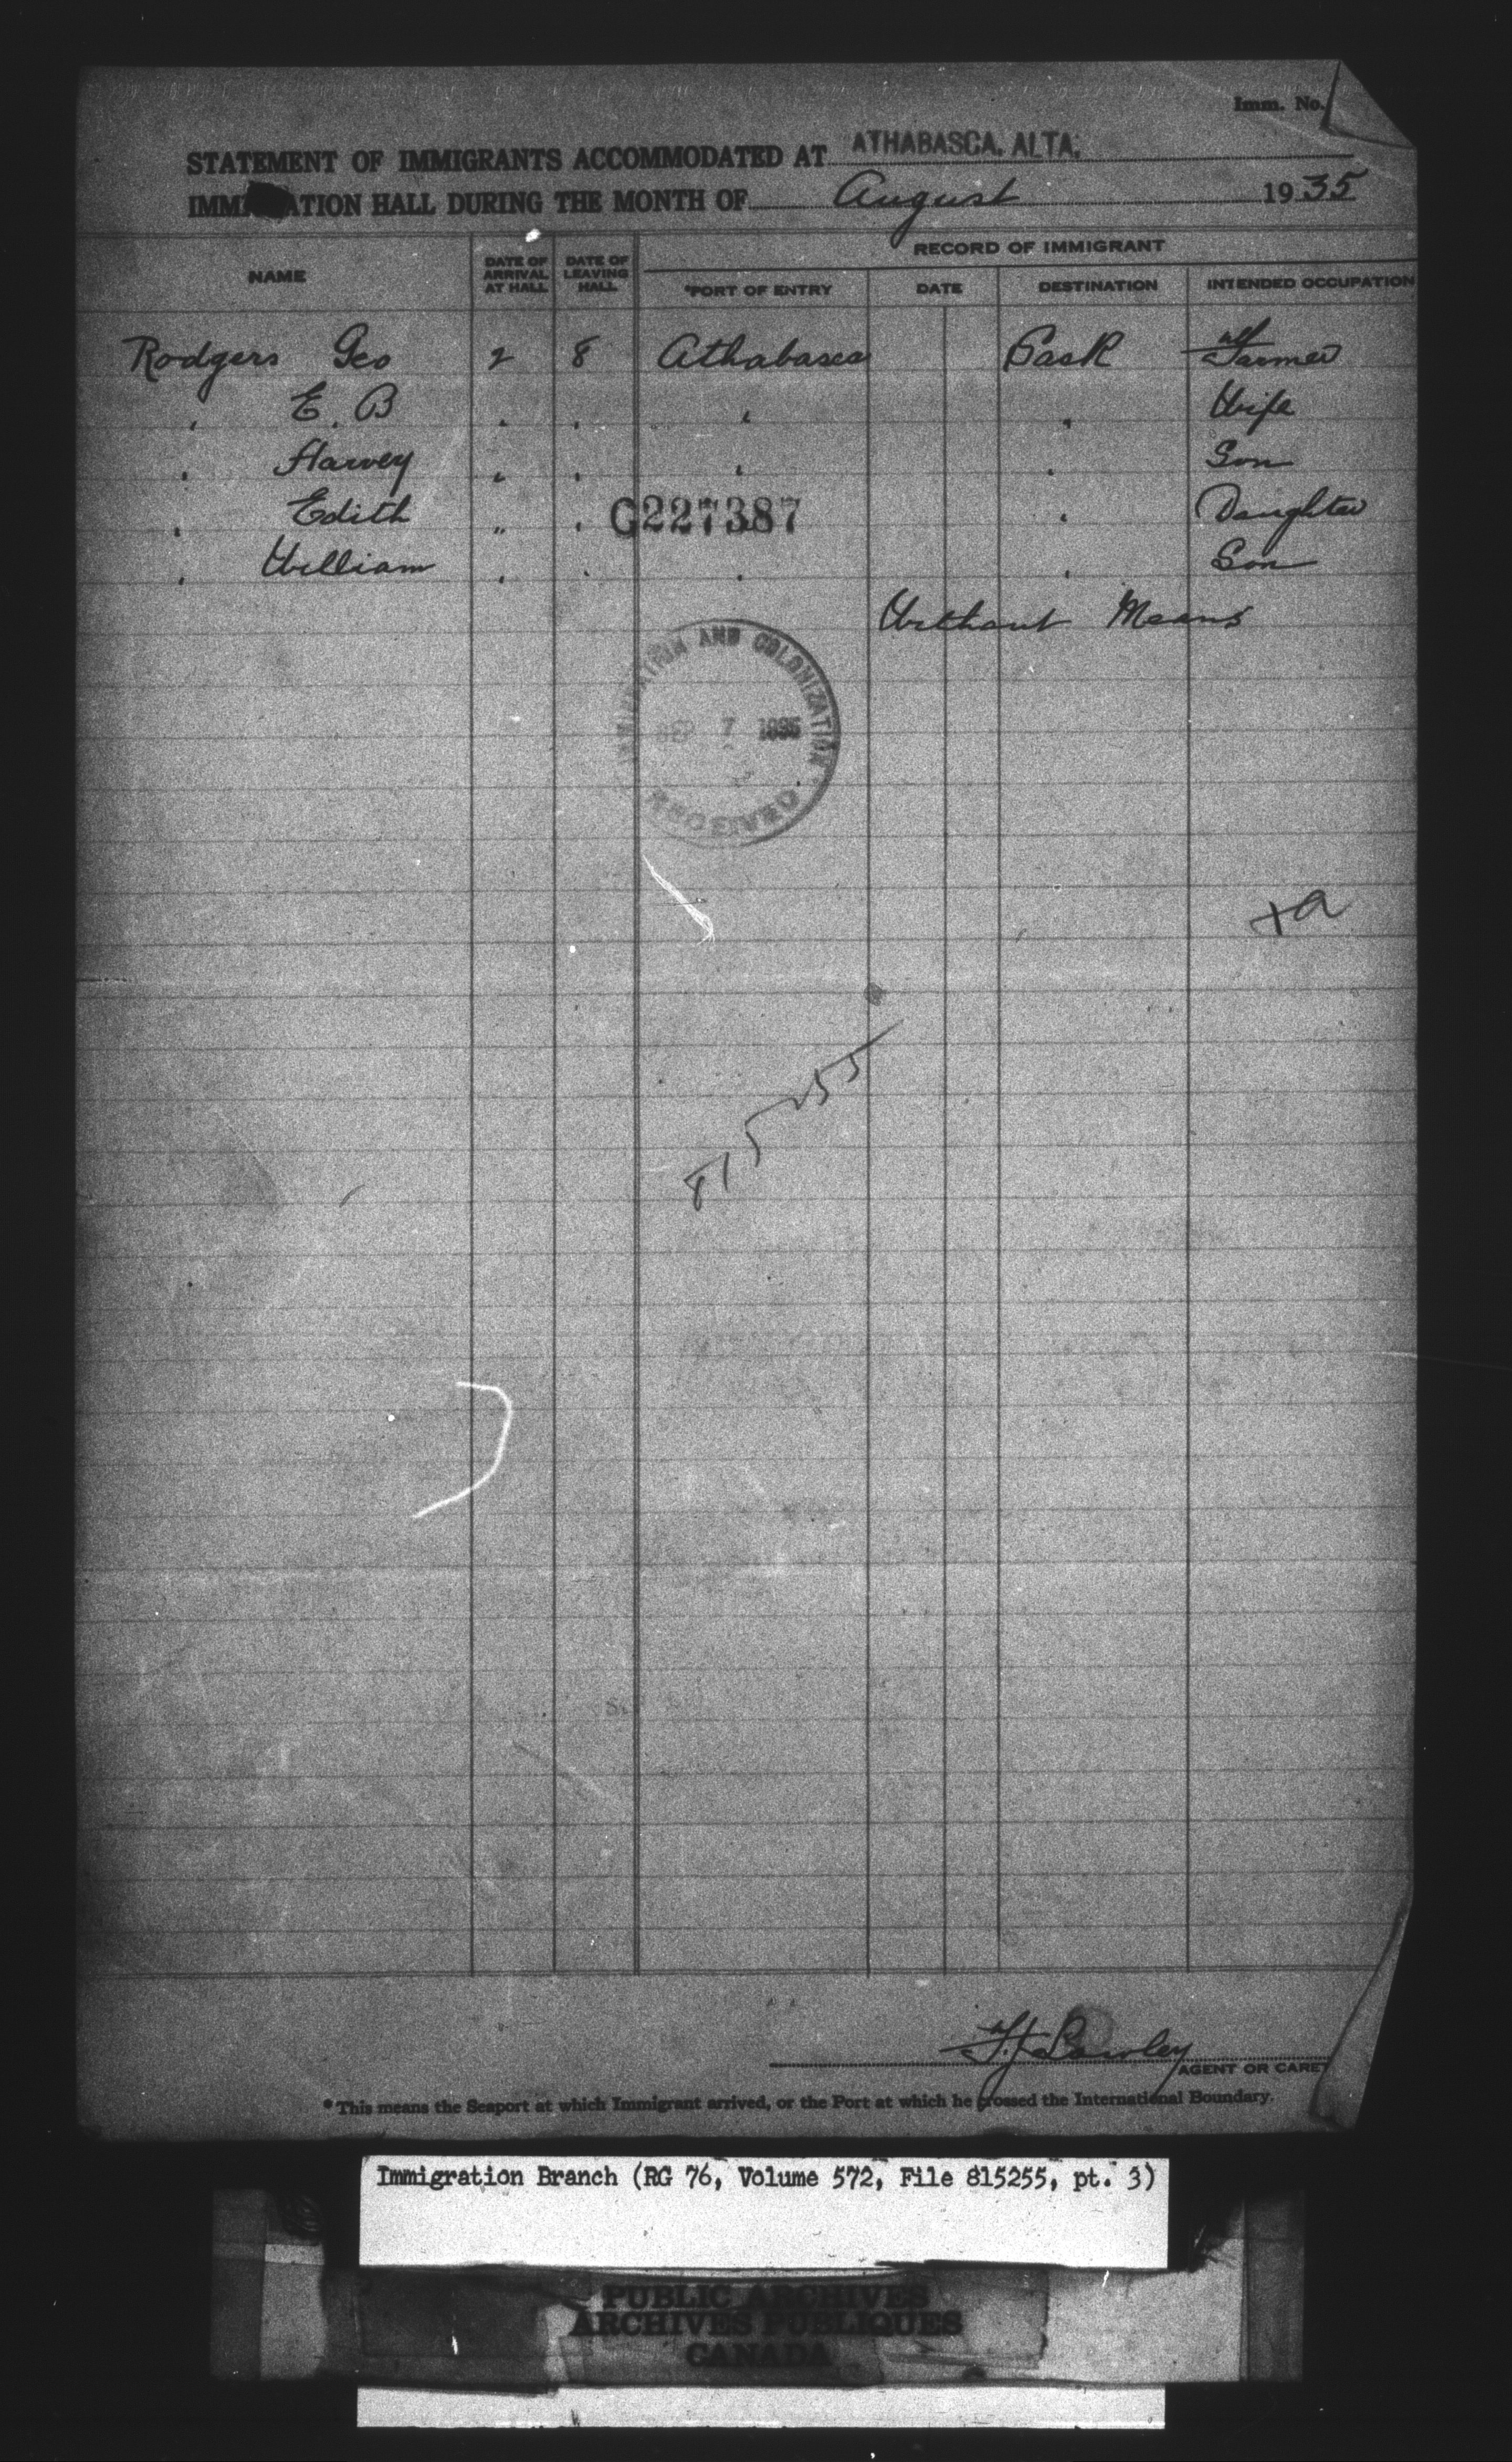 Imm. No.
STATEMENT OF IMMIGRANTS ACCOMMODATED AT ATHABASCA, ALTA.
IMM ATION HALL DURING THE MONTH OF August 1935
RECORD OF IMMIGRANT
NAME DATE OF ARRIVAL AT HALL DATE OF LEAVING HALL *PORT OF ENTRY DATE DESTINATION INTENDED OCCUPATION
Rodgers Geo 2 8 Athabasca Sask Farmer
" E. B " " " " Wife
" Harvey " " " " Son
" Edith " " G227387 " Daughter
" William " " " " Son
Without Means
IMMIGRATION AND COLONIZATION
SEP 7 1935
RECEIVED
+a
815255
F. J. Lawley
AGENT OR CARET
*This means the Seaport at which Immigrant arrived, or the Port at which he crossed the International Boundary.
Immigration Branch (RG 76, Volume 572, File 815255, pt. 3)
PUBLIC ARCHIVES
ARCHIVES PUBLIQUES
CANADA